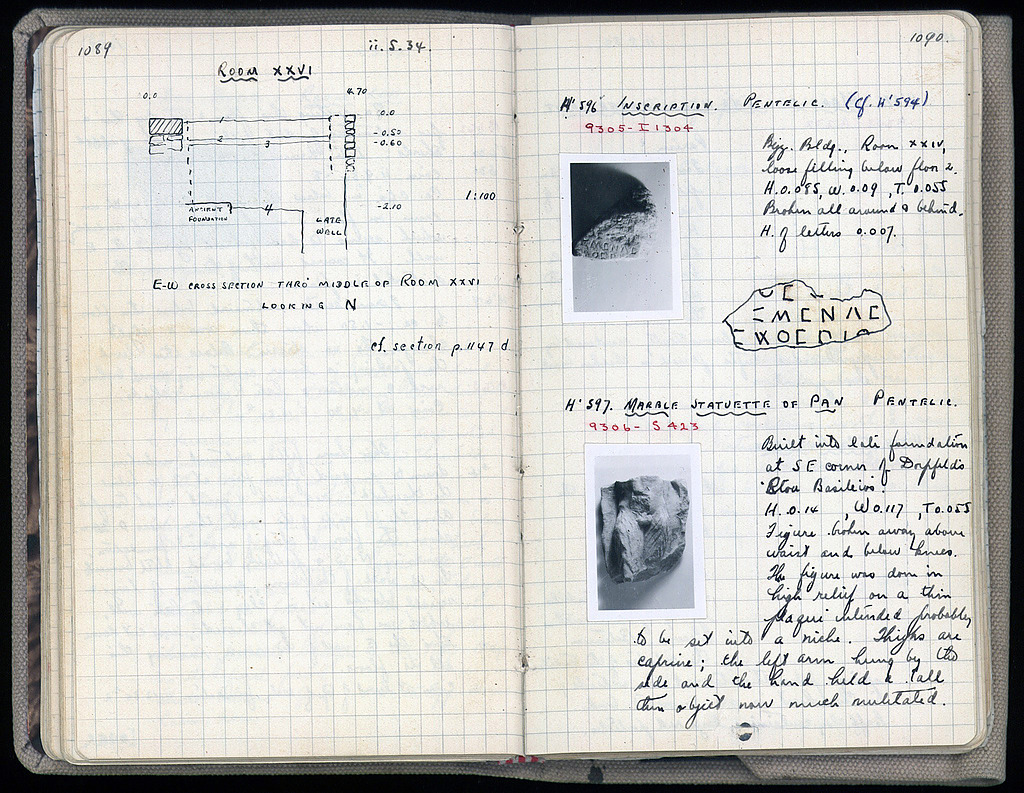 1089
ii.5.34.
ROOM XXVI
0.0
4.70
1
0.0
2
-0.50
3
-0.60
1:100
ANCIENT
FOUNDATION
4
-2.10
LATE
WALL
E-W CROSS SECTION THRO' MIDDLE OF ROOM XXVI
LOOKING N
cf. section p. 1147 d
1090.
H'596 INSCRIPTION. PENTELIC. (Cf. H'594)
9305 - I 1304
Byz. Bldg., Room XXIV,
loose filling below floor 2.
H.0.095, W. 0.09, T. 0.055
Broken all around & behind.
H. of letters 0.007.
ΕΜΕΝΛΕ
H'597. MARBLE STATUETTE OF PAN PENTELIC.
9306 - S 423
Built into late foundation
at SE corner of Dörpfeld's
'Stoa Basileios'.
H. 0.14 , W 0.117 , T 0.055
Figure broken away above
waist and below knees.
The figure was done in
high relief on a thin
plaque intended probably
to be set into a niche. Thighs are
caprine; the left arm hung by the
side and the hand held a tall
thin object now much mutilated.